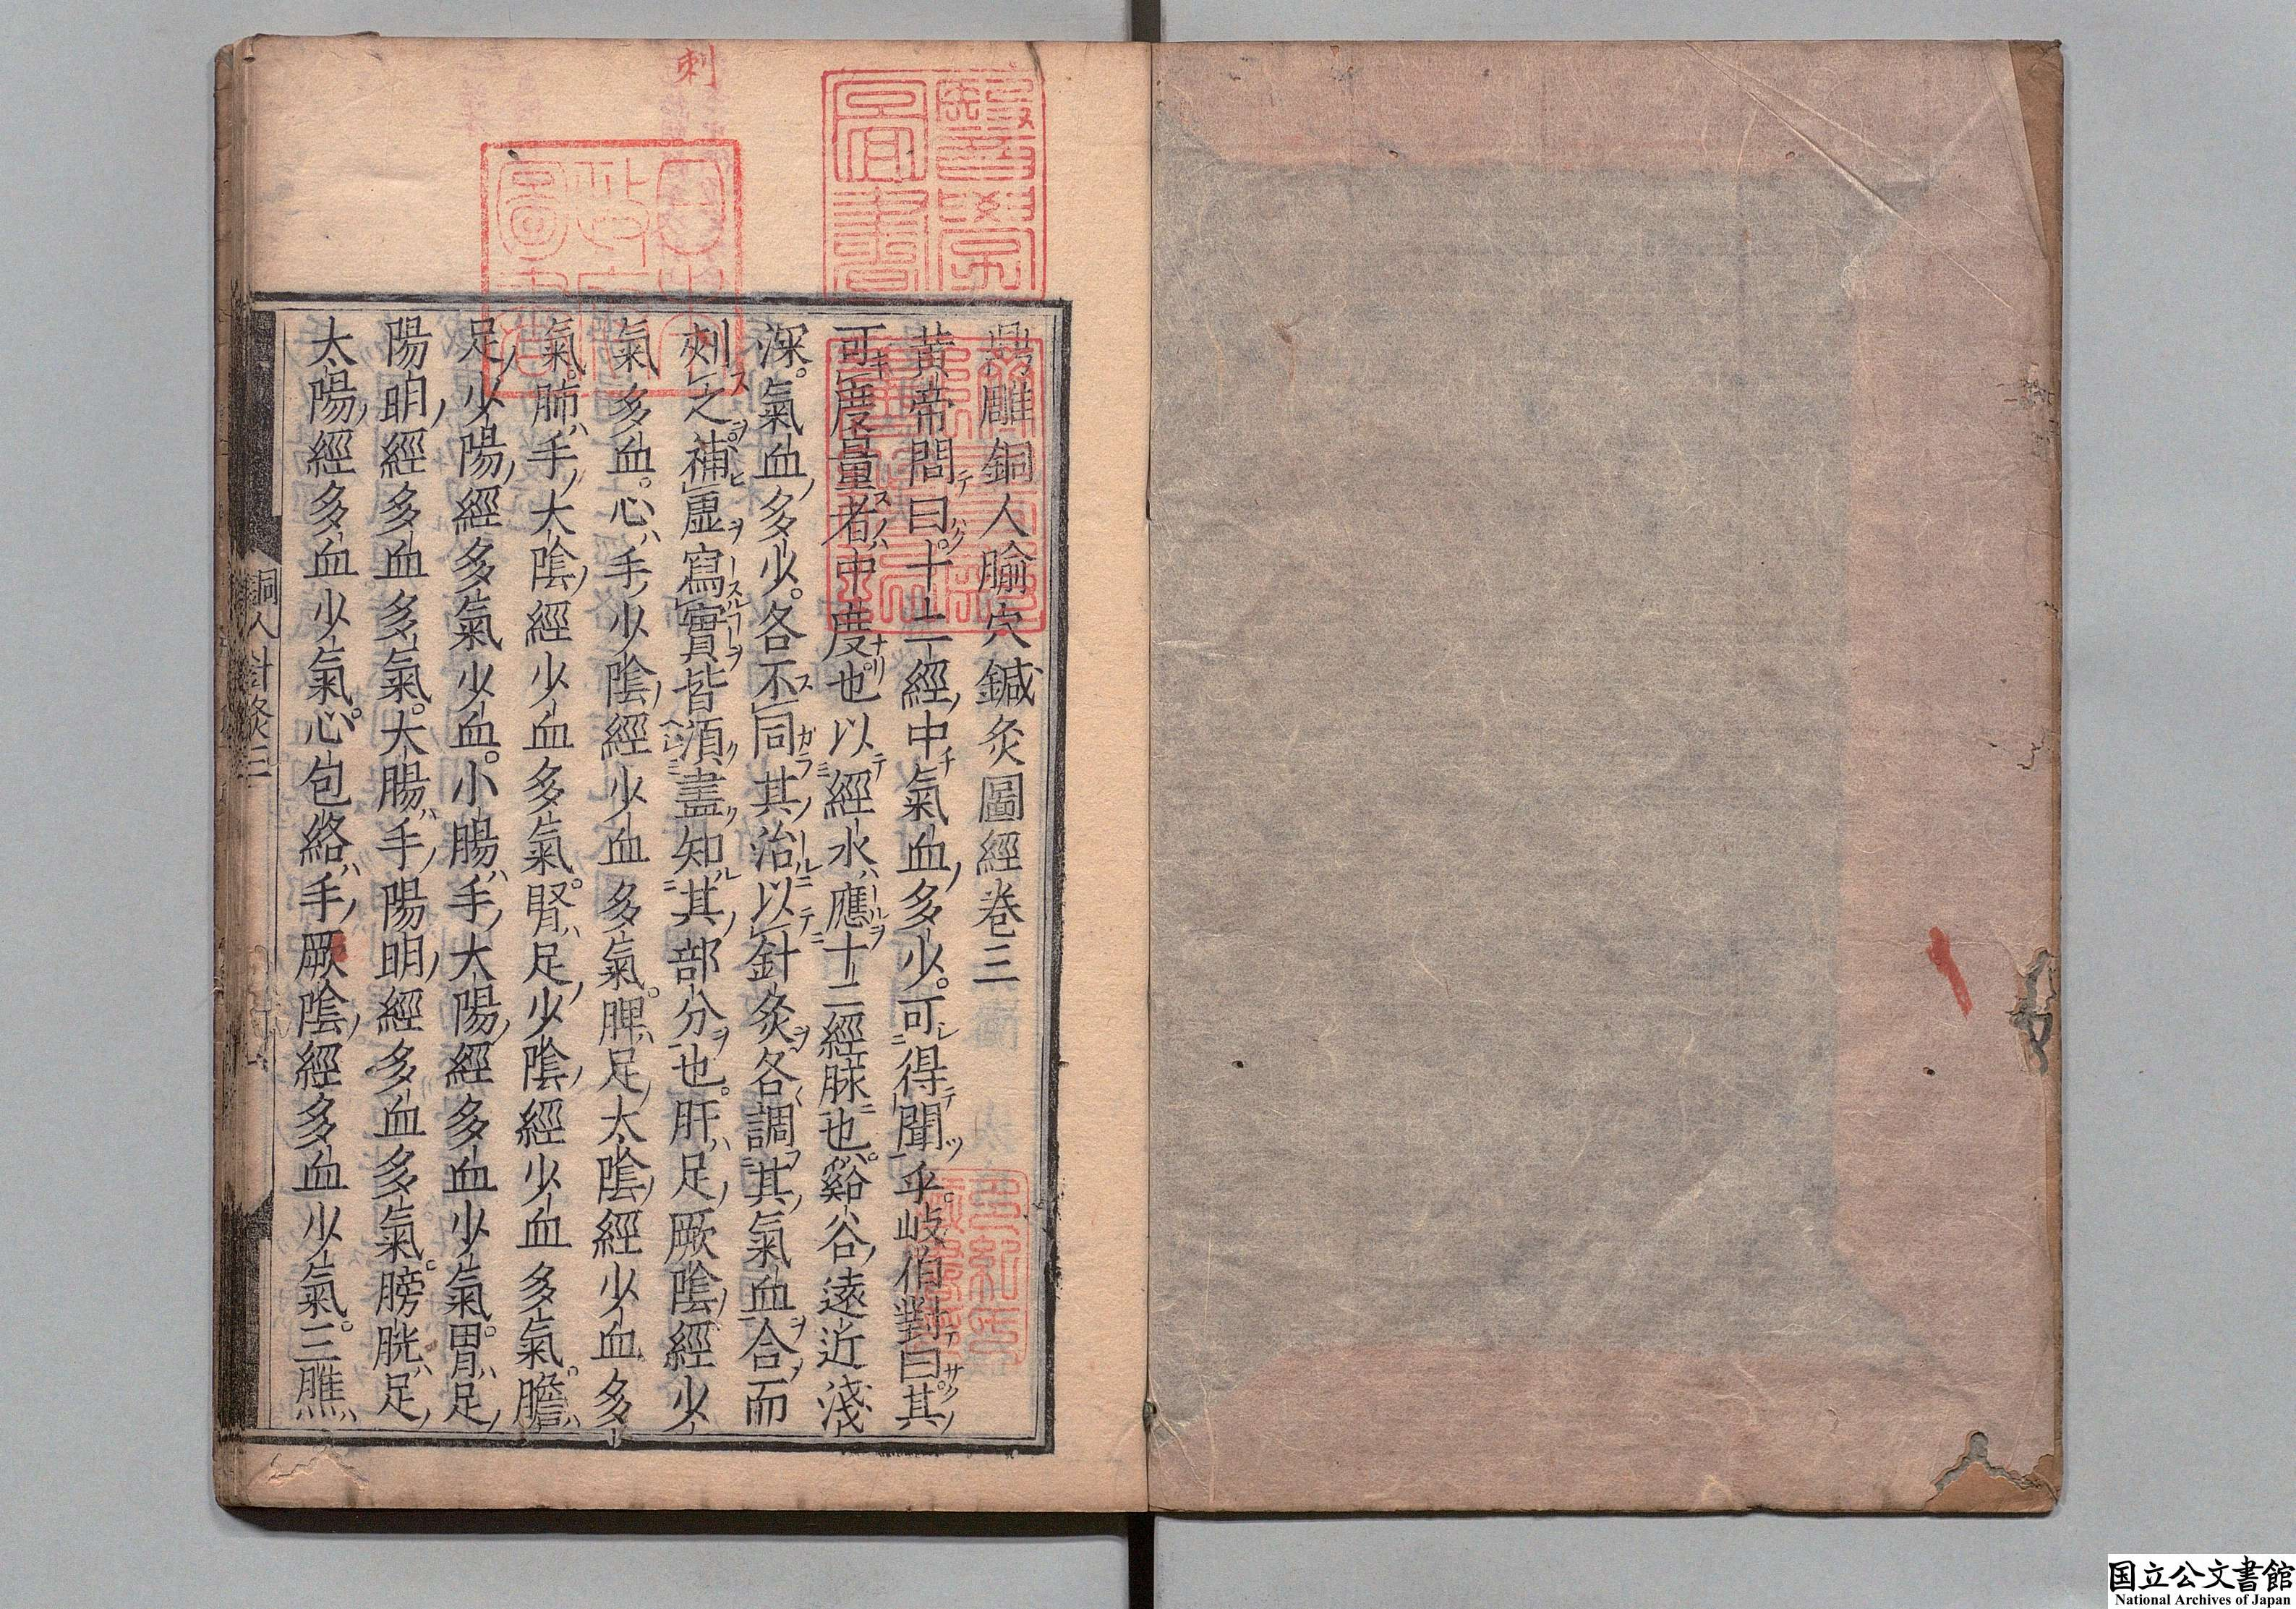 鼎雕銅人腧穴鍼灸圖經卷三
黃帝問曰十二經中氣血多少可得聞乎岐伯對曰其
可度量者中度也以經水應十二經脉也谿谷遠近淺
深氣血多少各不同其治以針灸各調其氣血合而
刺之補虛寫實皆須盡知其部分也肝足厥陰經少
氣多血心手少陰經少血多氣脾足太陰經少血多
氣肺手太陰經少血多氣腎足少陰經少血多氣膽
足少陽經多氣少血小腸手太陽經多血少氣胃足
陽明經多血多氣大腸手陽明經多血多氣膀胱足
太陽經多血少氣心包絡手厥陰經多血少氣三膲
銅人針灸三
刺
国立公文書館
National Archives of Japan